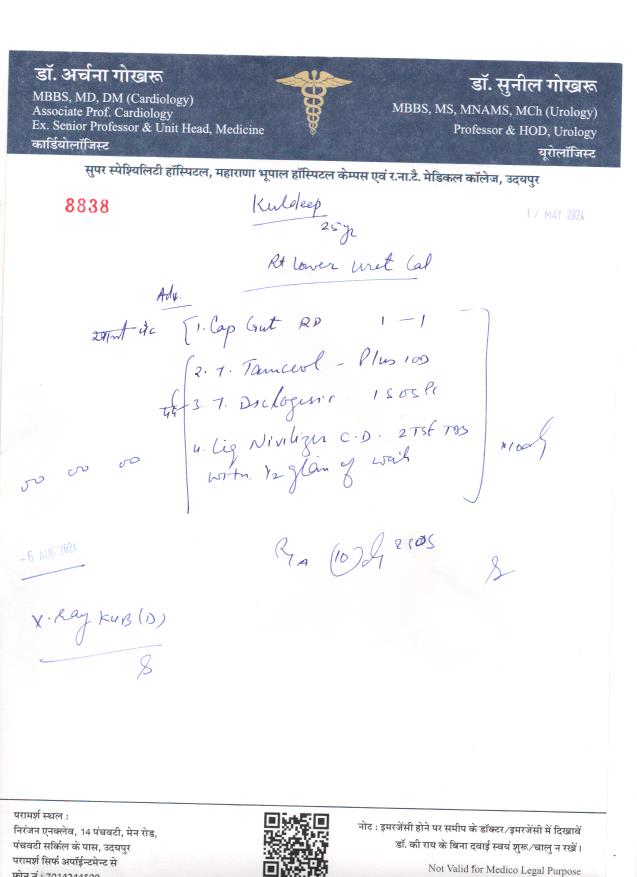 डॉ. अर्चना गोखरू
MBBS, MD, DM (Cardiology)
Associate Prof. Cardiology
Ex. Senior Professor & Unit Head, Medicine
कार्डियोलॉजिस्ट
डॉ. सुनील गोखरू
MBBS, MS, MNAMS, MCh (Urology)
Professor & HOD, Urology
यूरोलॉजिस्ट
सुपर स्पेश्यिलिटी हॉस्पिटल, महाराणा भूपाल हॉस्पिटल केम्पस एवं र.ना.टै. मेडिकल कॉलेज, उदयपुर
8838
Kuldeep
25 yr
17 MAY 2024
Rt Lower Uret Cal
Adv.
1. Cap Gut RD 1 - 1
2. T. - Plus 1 OD
3. T. 1 SOS
4. Liq C.D. 2 TSF TDS
with 1/2 glass of
(10)
- 6 AUG 2024
X-Ray KUB (D)
परामर्श स्थल :
निरंजन एनक्लेव, 14 पंचवटी, मेन रोड,
पंचवटी सर्किल के पास, उदयपुर
परामर्श सिर्फ अपॉईन्टमेन्ट से
नोट : इमरजेंसी होने पर समीप के डॉक्टर/इमरजेंसी में दिखावें
डॉ. की राय के बिना दवाई स्वयं शुरू/चालु न रखें।
Not Valid for Medico Legal Purpose